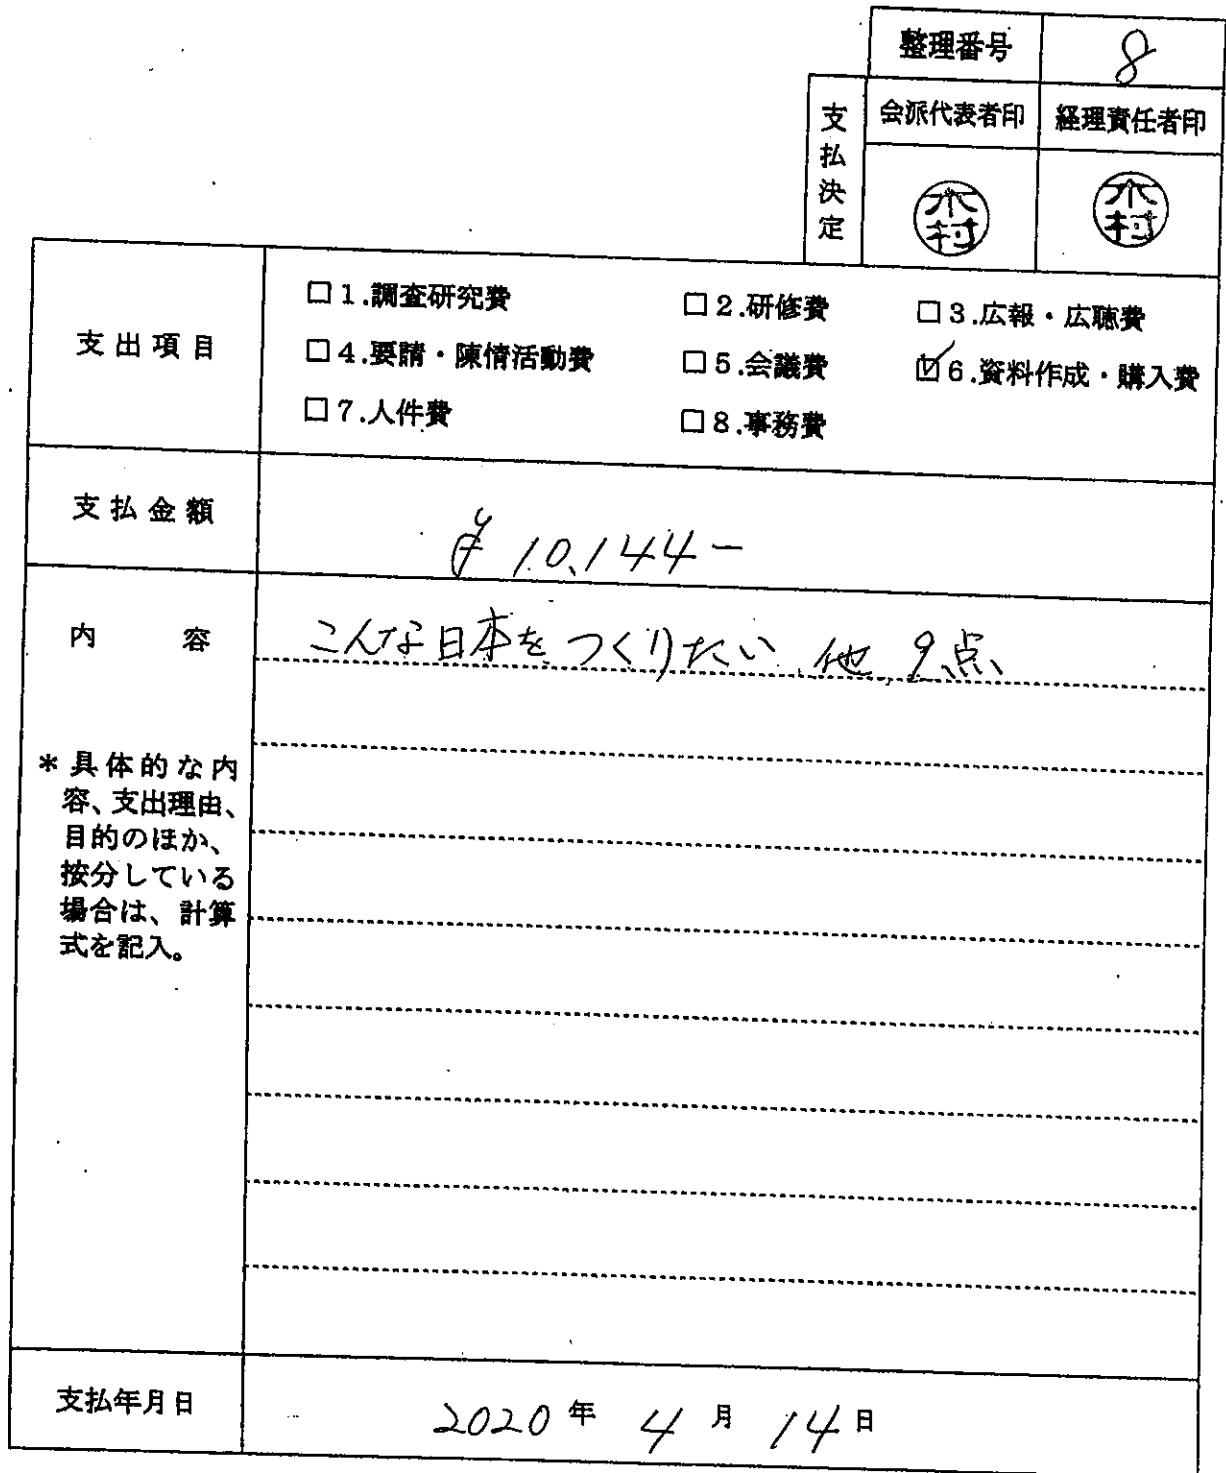 整理番号 8
支払決定 会派代表者印 経理責任者印
木村 木村
支出項目
□1.調査研究費 □2.研修費 □3.広報・広聴費
□4.要請・陳情活動費 □5.会議費 ☑6.資料作成・購入費
□7.人件費 □8.事務費
支払金額 ¥10,144-
内容 こんな日本をつくりたい 他 9点
*具体的な内
容、支出理由、
目的のほか、
按分している
場合は、計算
式を記入。
支払年月日 2020年 4月 14日